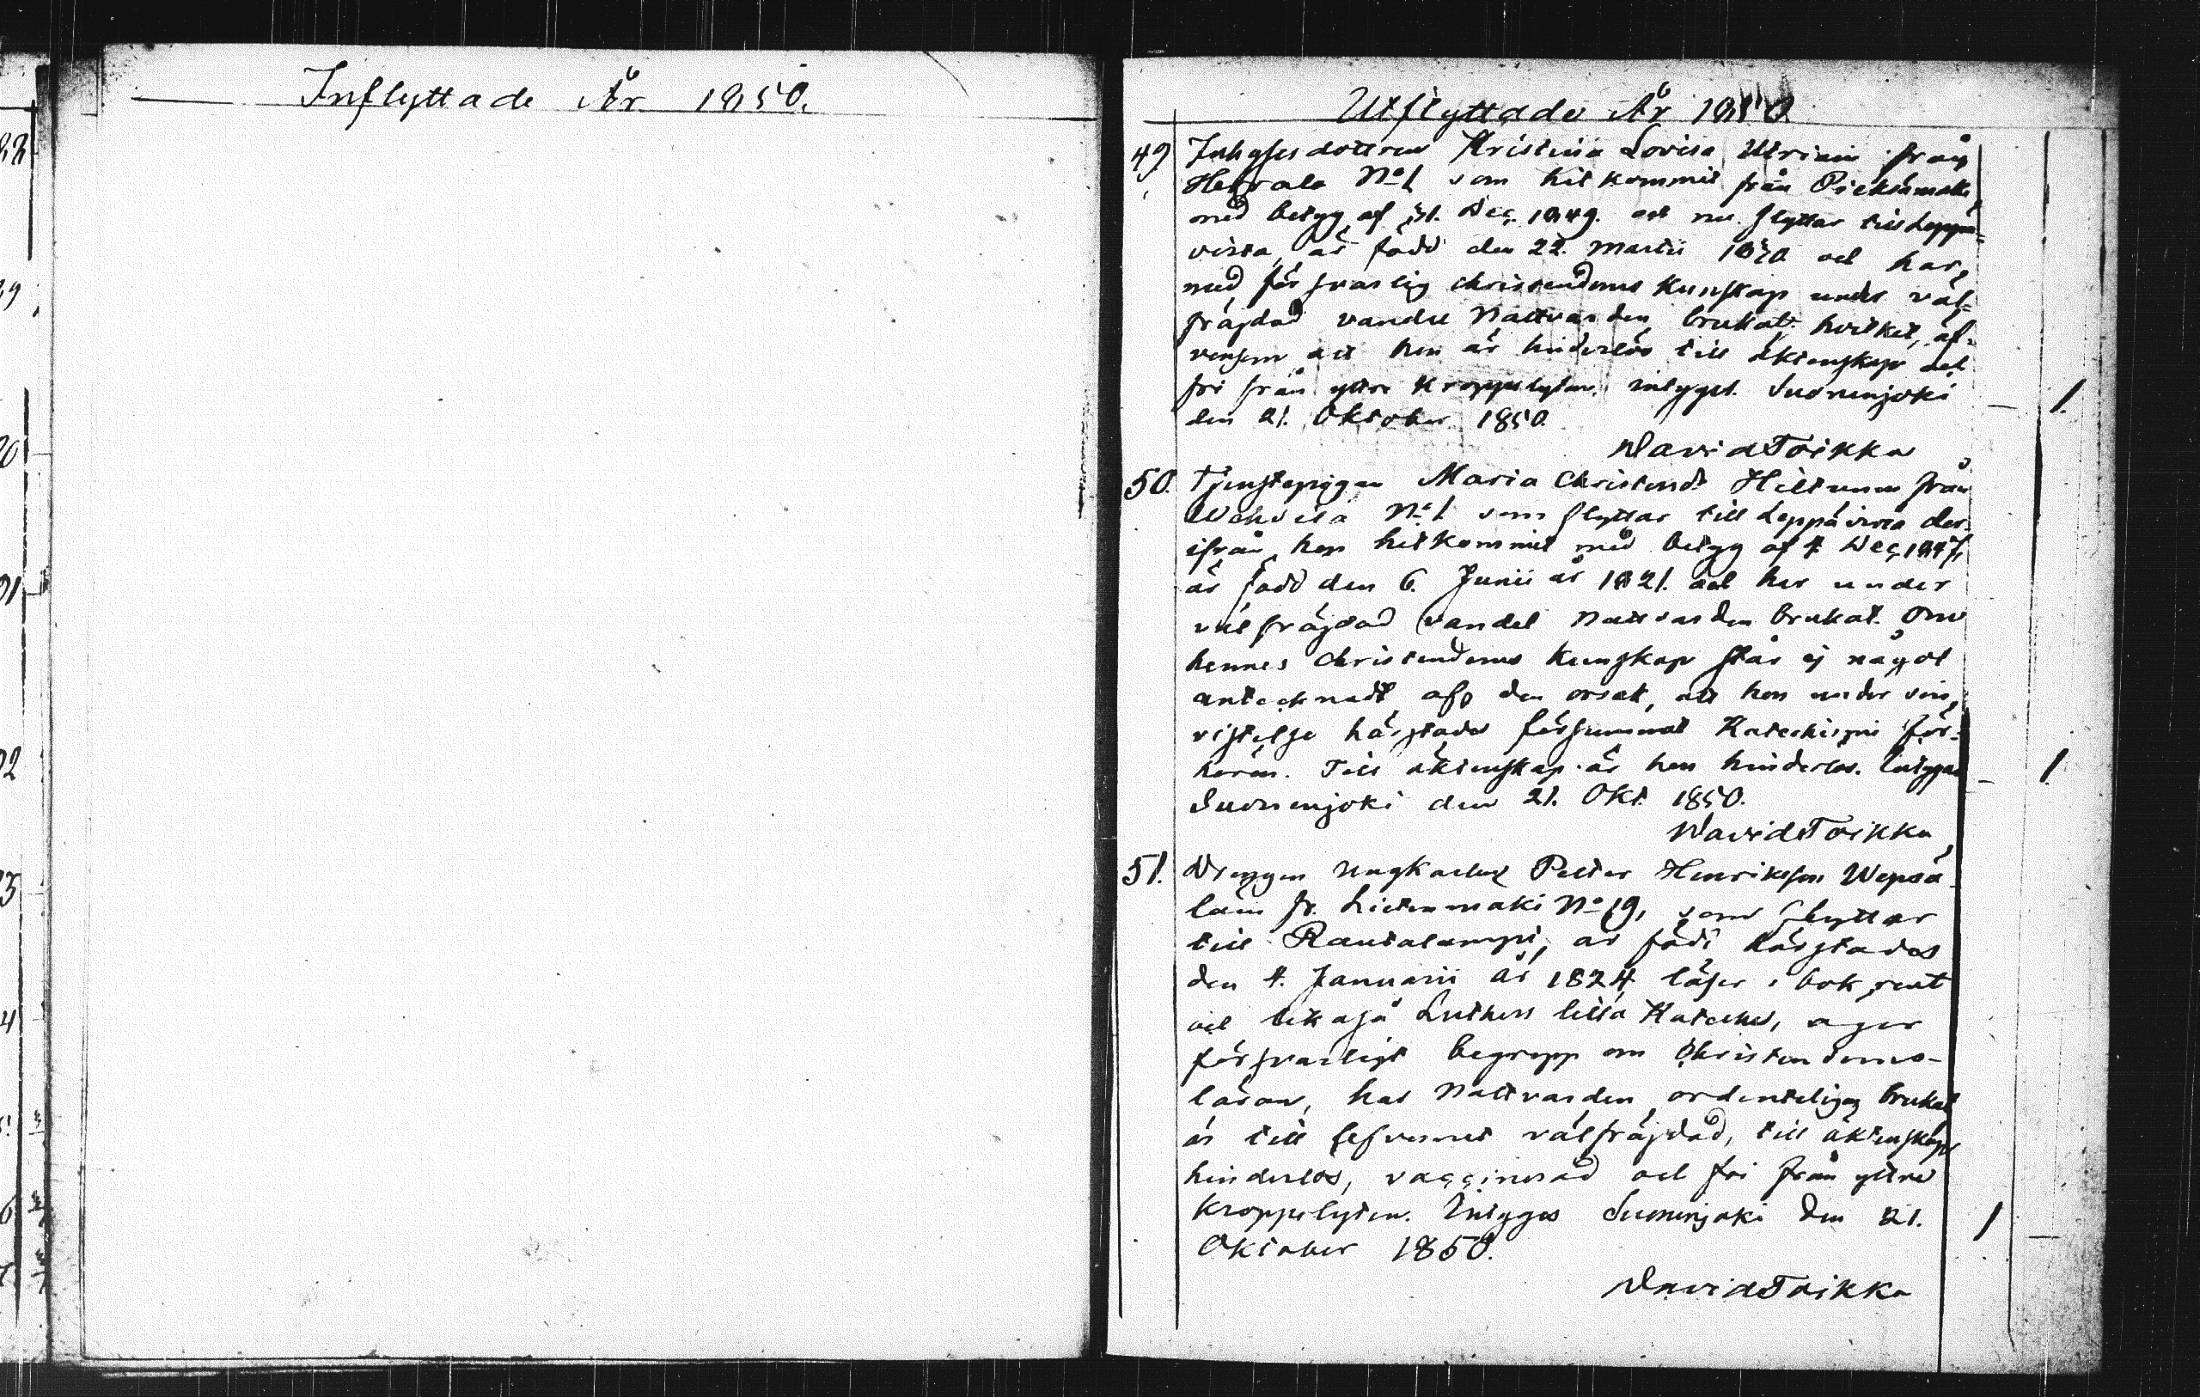 Inflyttade År 1850.
Utflyttade År 1850
49. Inhyses dottren Kristina Lovisa från
No 1 som hit kommit från Pieksämäki
med betyg af 31. Dec. 1849. och nu flyttar till Leppä=
virta, är född den 22. Martii och har,
med försvarlig christendoms kunskap under väl=
fräjdad vandel Nattvarden brukat. hvilket, äf=
vensom att hon är hinderlös till äktenskap och
fri från yttre kroppslyten, intygas. Suonenjoki
den 21. Oktober 1850.
1.
David Toikka
50. Tjenstepigan Maria Christinds Hiltunen från
No 1 som flyttar till Leppävirta der=
ifrån hon hitkommit med betyg af 4 Dec. 1847,
är född den 6. Junii år 1821. och har under
välfräjdad vandel Nattvarden brukat. Om
hennes christendoms kunskap står ej något
antecknadt, af den orsak, att hon under sin
vistelse härstädes försummat Katechismi för=
hören. Till äktenskap är hon hinderlös. Intygas
Suonenjoki den 21. Okt. 1850.
1.
David Toikka
51. Drengen Ungkarlen Petter Henriksson Wepsä=
läin fr. Lietenmäki No 19, som flyttar
till Rautalampi, är född härstädes
den 4. Januarii år 1824 läser i bok rent
och likaså Luthers lilla Kateches, äger
försvarligt begrepp om Christendoms-
läran, har Nattvarden ordenteligen brukat
är till lefvernet välfräjdad, till äktenskap
hinderlös, vaccinerad och fri från yttre
kroppslyten. Intygas Suonenjoki den 21.
Oktober 1850.
1
David Toikka